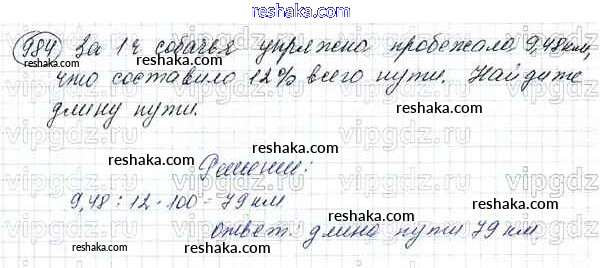 984 За 1 ч собачья упряжка пробежала 9,48 км,
что составило 12% всего пути. Найдите
длину пути.
Решение:
9,48 : 12 · 100 = 79 км
ответ: длина пути 79 км
reshaka.com
reshaka.com
reshaka.com
reshaka.com
reshaka.com
reshaka.com
reshaka.com
reshaka.com
reshaka.com
vipgdz.ru
vipgdz.ru
vipgdz.ru
vipgdz.ru